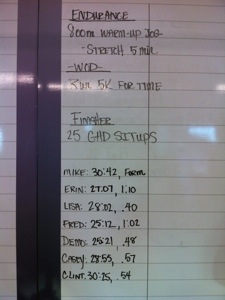 ENDURANCE
800m WARM-UP JOG
- STRETCH 5 min
-WOD-
RUN 5K FOR TIME
FINISHER
25 GHD SITUPS
MIKE: 30:42, Form
ERIN: 27:07, 1:10
LISA: 28:02, .40
FRED: 25:12, 1:02
DEMO: 25:21, .48
CASEY: 28:55, .57
CLINT: 30:25, .54